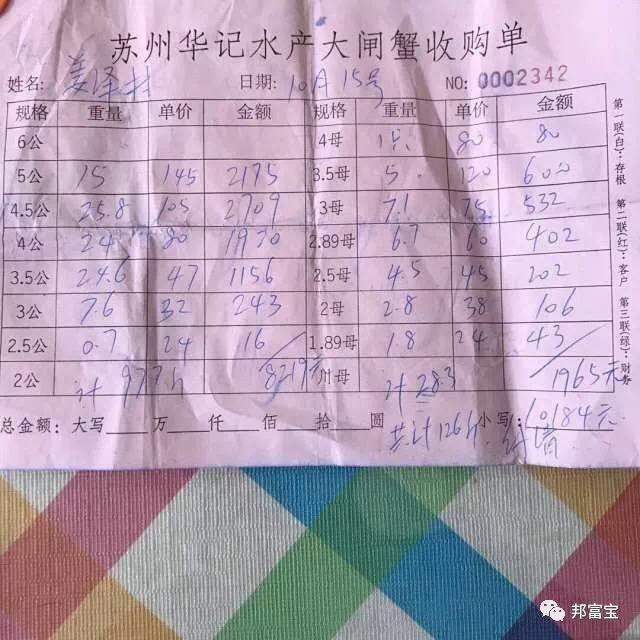 苏州华记水产大闸蟹收购单
姓名: 姜泽林 日期: 10月15号 NO: 0002342
规格 重量 单价 金额 规格 重量 单价 金额
6公 4母 1只 80 80
5公 15 145 2175 3.5母 5 120 600
4.5公 25.8 105 2709 3母 7.1 75 532
4公 24 80 1920 2.89母 6.7 60 402
3.5公 24.6 47 1156 2.5母 4.5 45 202
3公 7.6 32 243 2母 2.8 38 106
2.5公 0.7 24 16 1.89母 1.8 24 43
2公 计 97.7斤 8219元 川母 计 28.3 1965元
总金额: 大写 万 仟 佰 拾 圆 小写: 10184元
共计126斤
第一联(白): 存根 第二联(红): 客户 第三联(绿): 财务
邦富宝